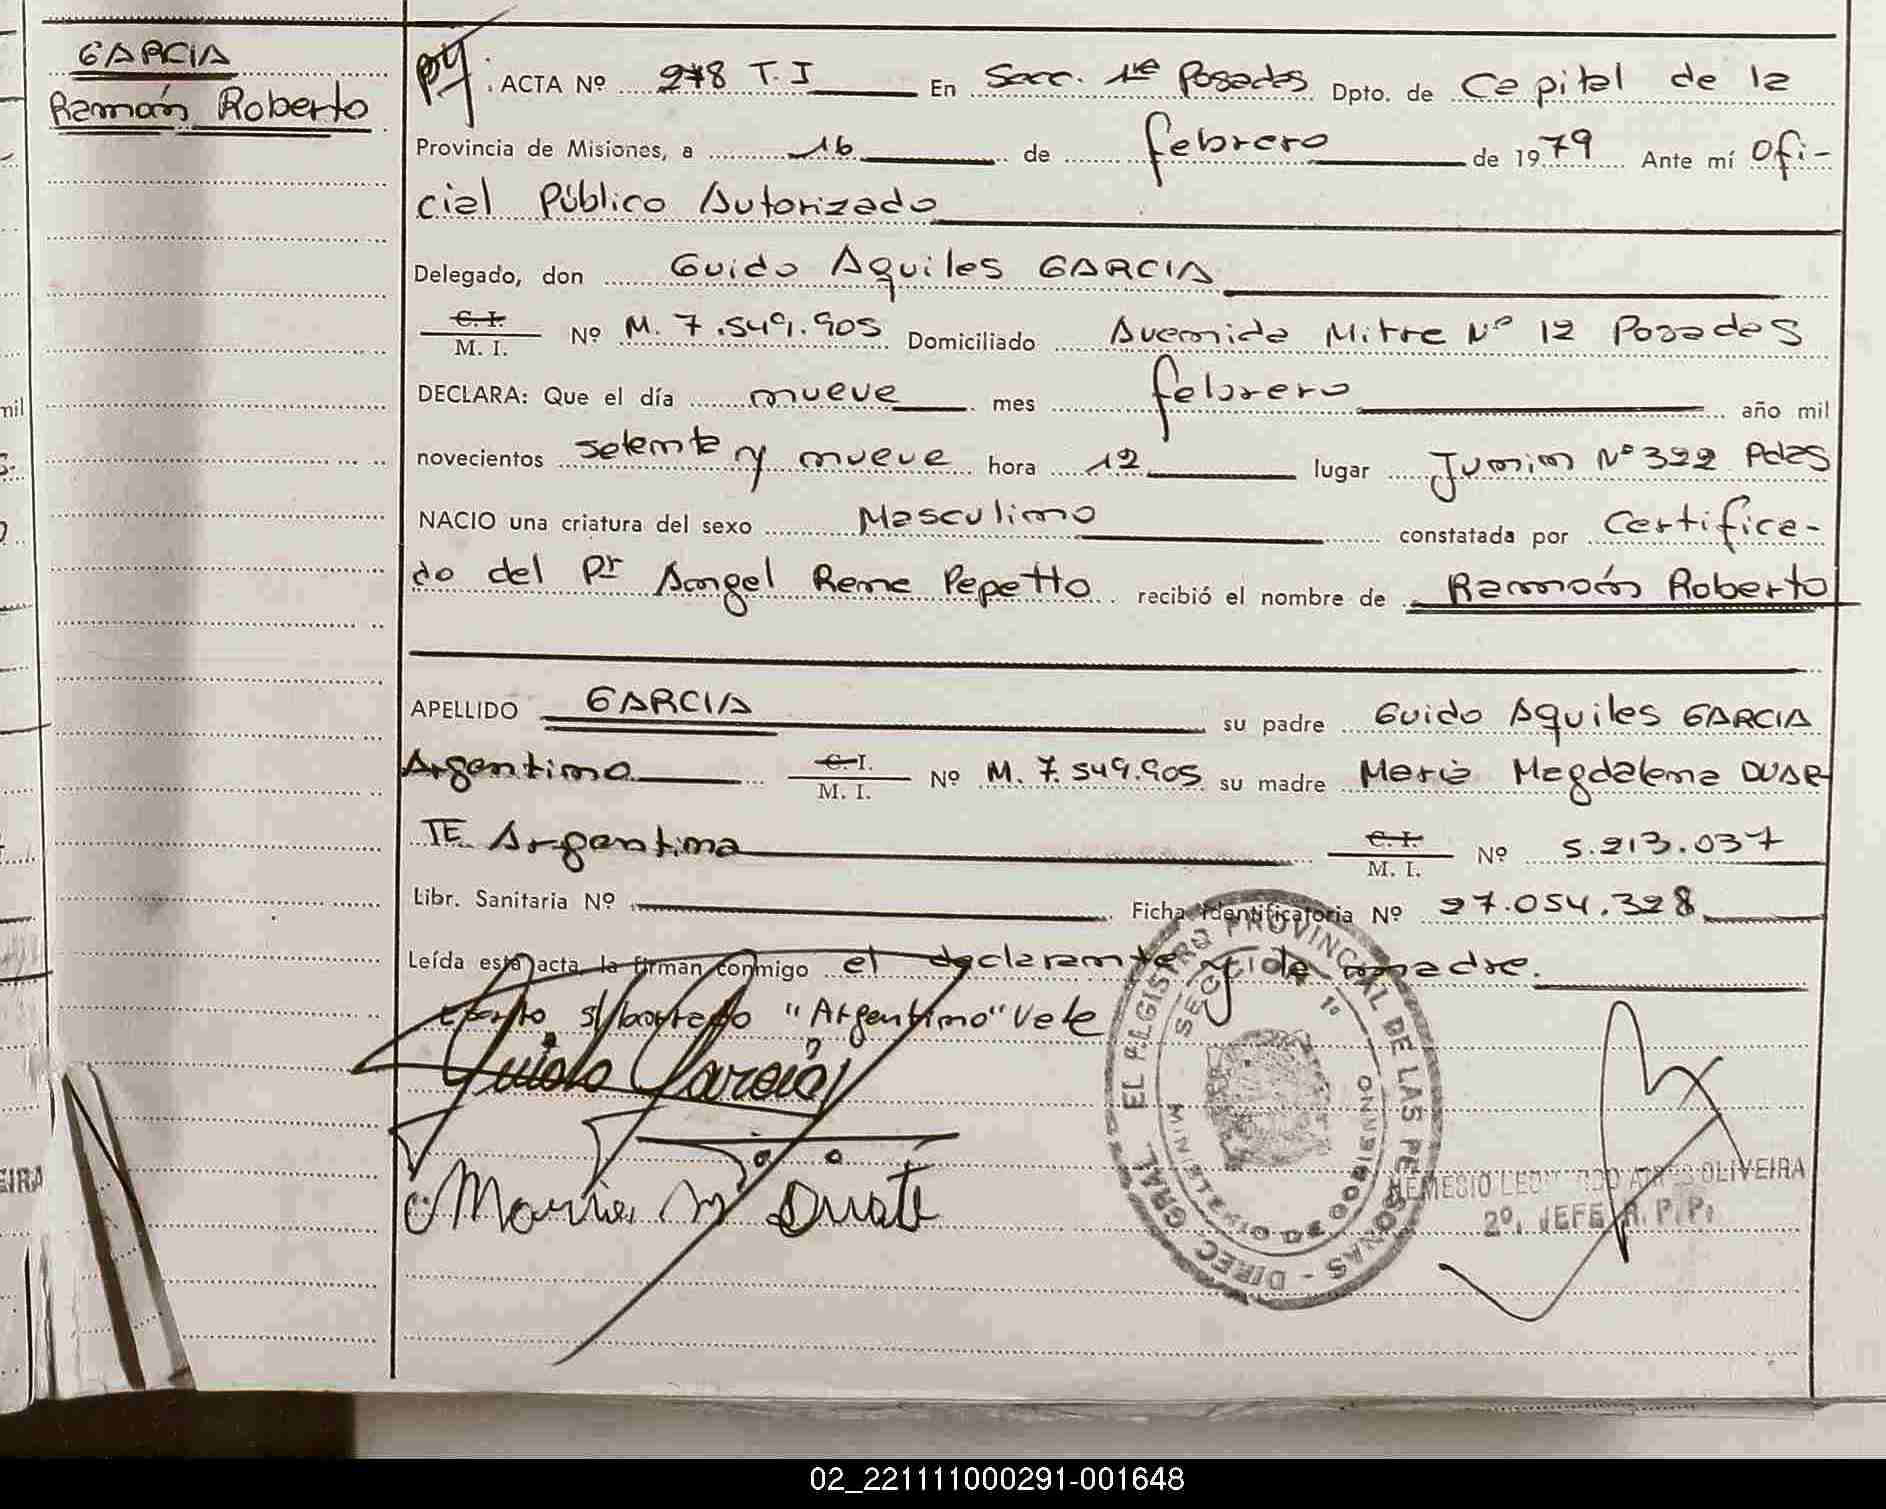 GARCIA
Ramón Roberto
ACTA Nº 278 T. I En Secc. 1ra Posadas Dpto. de Capital de la
Provincia de Misiones, a 16 de febrero de 1979 Ante mí Ofi-
cial Público Autorizado
Delegado, don Guido Aquiles GARCIA
C. I.
M. I. Nº M. 7.549.905 Domiciliado Avenida Mitre Nº 12 Posadas
DECLARA: Que el día nueve mes febrero año mil
novecientos setenta y nueve hora 12 lugar Junin Nº 322 Pdas
NACIO una criatura del sexo Masculino constatada por Certifica-
do del Dr Angel Rene Pepetto recibió el nombre de Ramón Roberto
APELLIDO GARCIA su padre Guido Aquiles GARCIA
Argentino C. I. M. I. Nº M. 7.549.905 su madre Maria Magdalena DUAR
TE Argentina C. I. M. I. Nº 5.213.037
Libr. Sanitaria Nº Ficha Identificatoria Nº 27.054.328
Leída esta acta la firman conmigo el declarante y la madre.
s/borrado "Argentino" Vale
Guido Garcia
Maria M Duarte
DIREC. GRAL. EL REGISTRO PROVINCIAL DE LAS PERSONAS
MINISTERIO DE GOBIERNO
OLIVEIRA
2º. JEFE R. P. P.
mil
EIRA
02_221111000291-001648